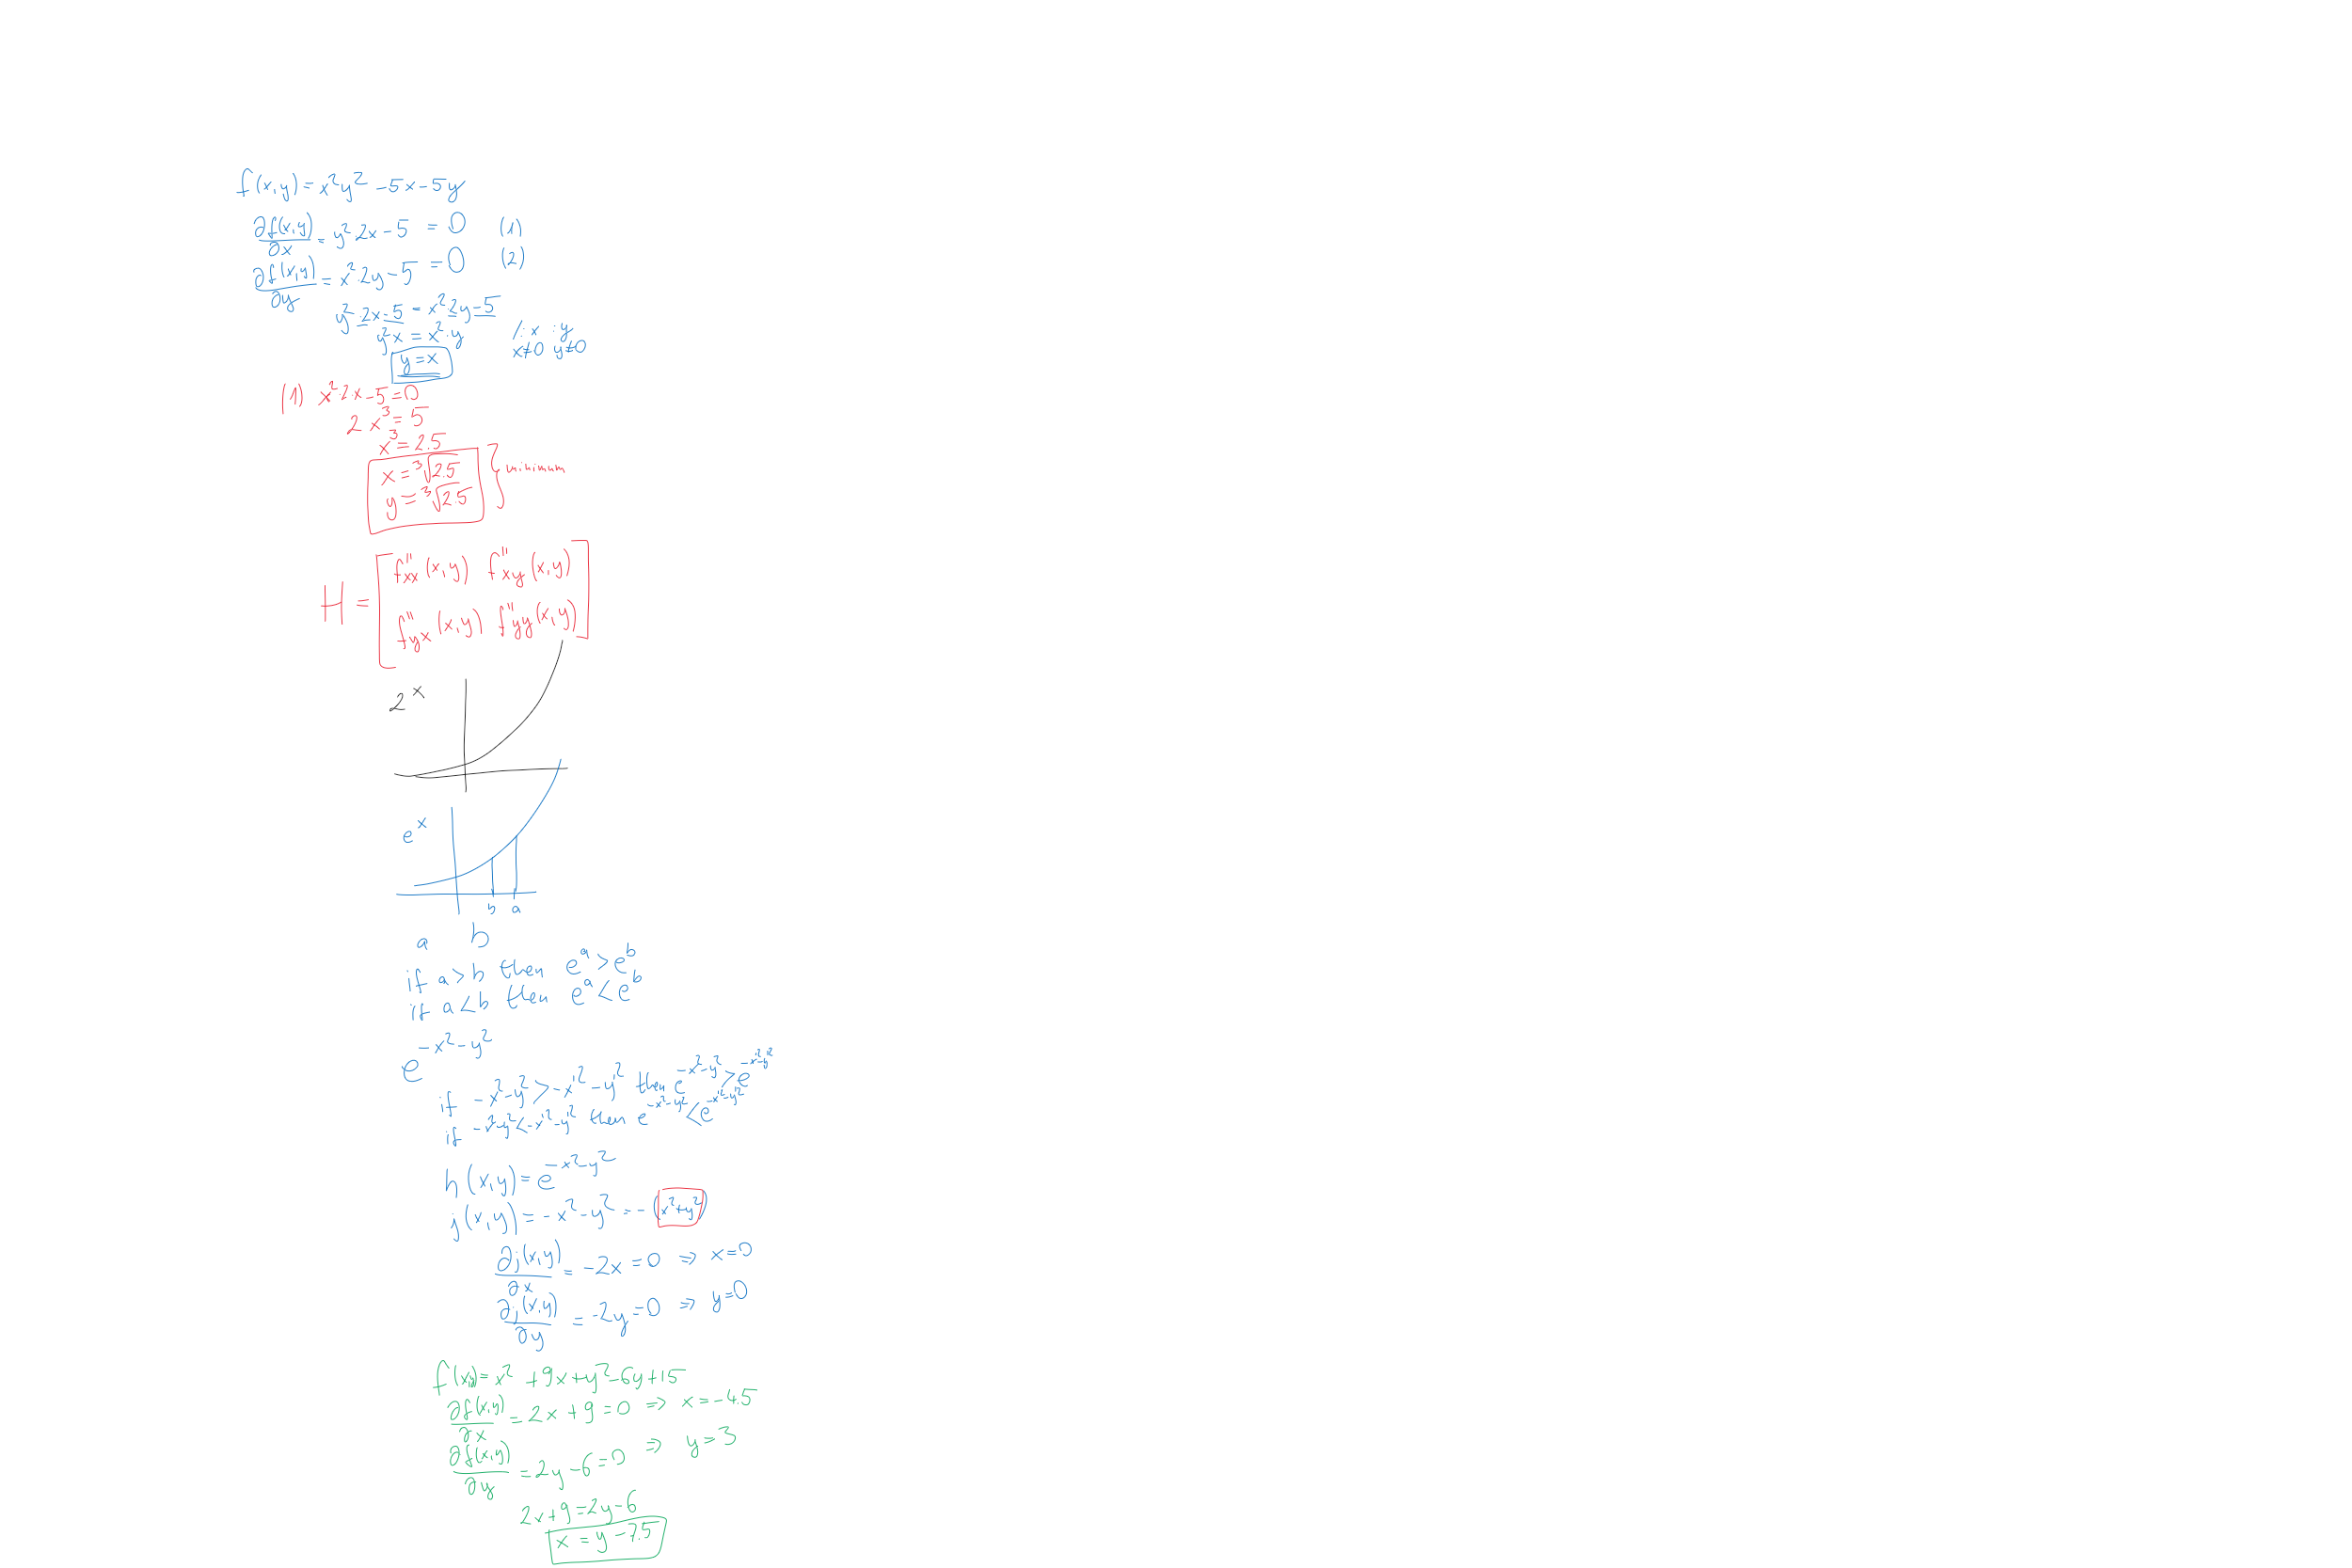 f(x,y)=x²y²-5x-5y
∂f(x,y)/∂x = y²·2x-5 = 0 (1)
∂f(x,y)/∂y = x²·2y-5 = 0 (2)
y²·2x-5 = x²·2y-5
y²x = x²·y /:x :y
y=x x≠0 y≠0
(1) x²·2·x-5=0
2x³=5
x³=2.5
x=³√2.5
y=³√2.5 } minimum
H = [f''xx(x,y) f''xy(x,y)
f''yx(x,y) f''yy(x,y)]
2^x
e^x
b a
a b
if a>b then e^a>e^b
if a<b then e^a<e^b
e^(-x²-y²)
if -x²-y²>-x'²-y'² then e^(-x²-y²)>e^(-x'²-y'²)
if -x²-y²<-x'²-y'² then e^(-x²-y²)<e^(-x'²-y'²)
h(x,y)=e^(-x²-y²)
j(x,y)=-x²-y²=-(x²+y²)
∂j(x,y)/∂x = -2x=0 => x=0
∂j(x,y)/∂y = -2y=0 => y=0
f(x,y)=x²+9x+y²-6y+15
∂f(x,y)/∂x = 2x+9=0 => x=-4.5
∂f(x,y)/∂y = 2y-6=0 => y=3
2x+9=2y-6
x=y-7.5